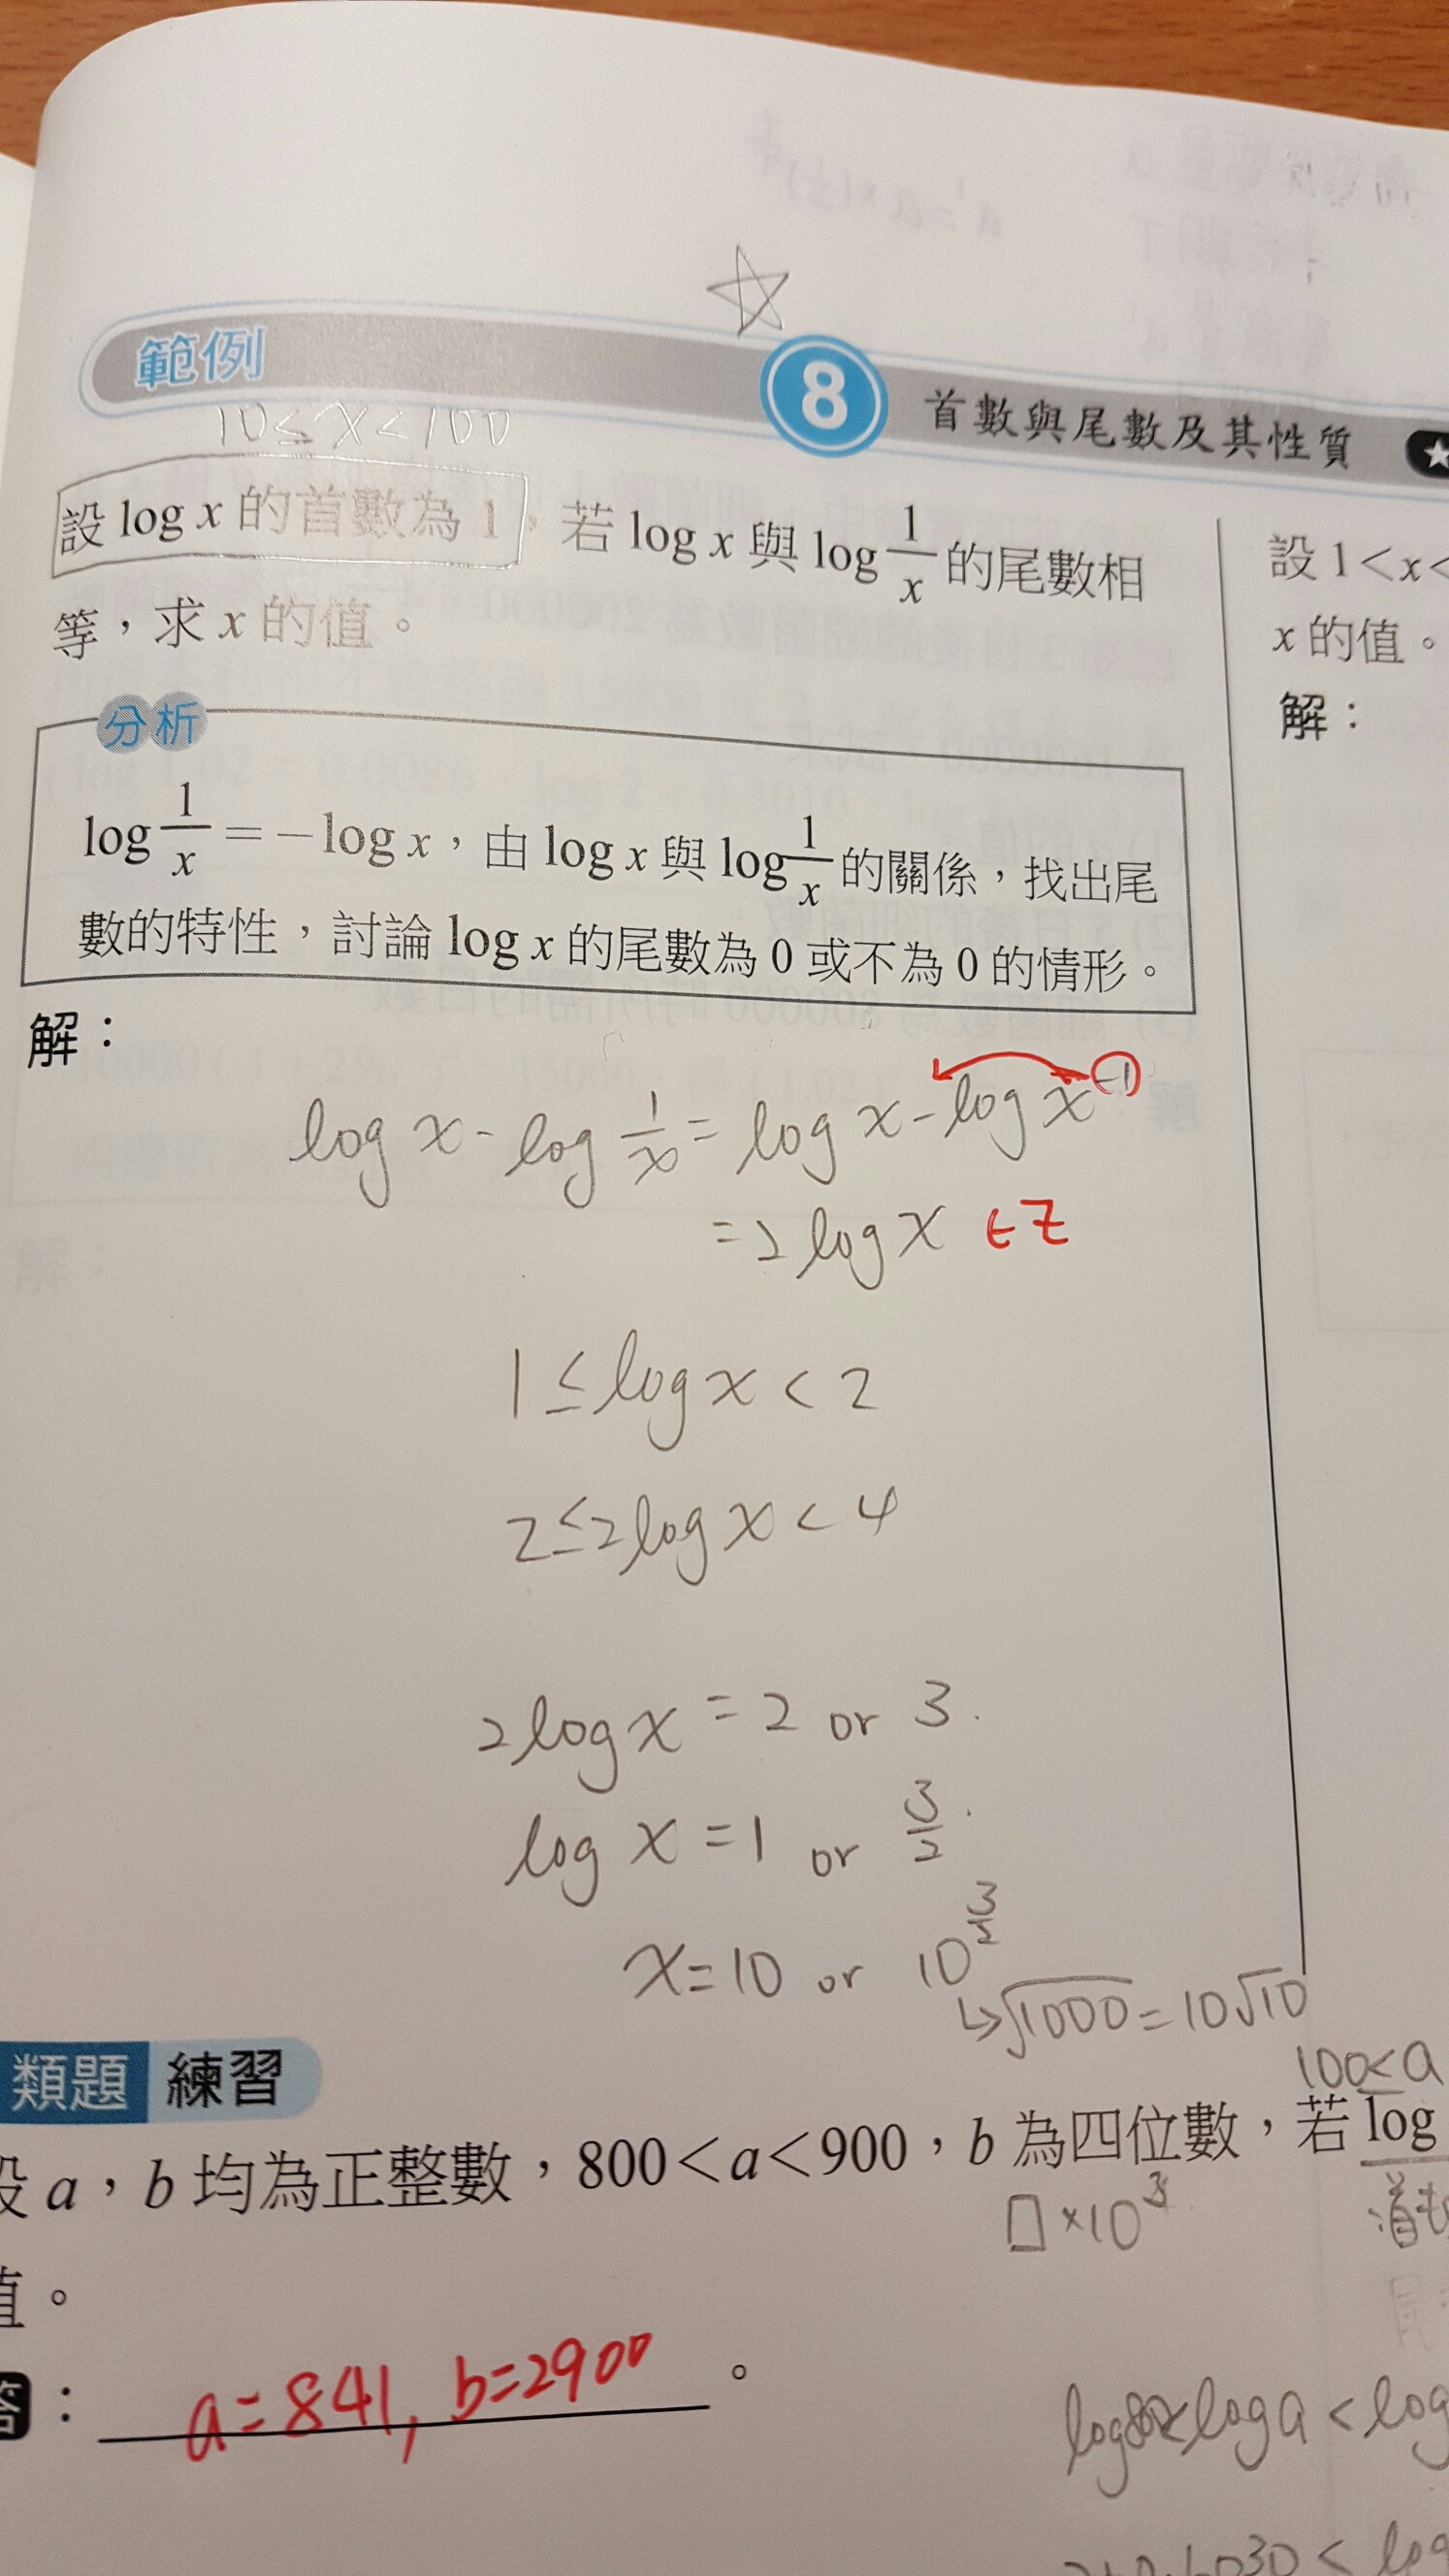 範例 8 首數與尾數及其性質
10≤x<100
設 log x 的首數為 1，若 log x 與 log 1/x 的尾數相
等，求 x 的值。
分析
log 1/x = −log x，由 log x 與 log 1/x 的關係，找出尾
數的特性，討論 log x 的尾數為 0 或不為 0 的情形。
解：
log x - log 1/x = log x - log x^-1
= 2 log x ∈ Z
1 ≤ log x < 2
2 ≤ 2 log x < 4
2 log x = 2 or 3.
log x = 1 or 3/2.
x = 10 or 10^3/2
↳ √1000 = 10√10
設 1<x<
x 的值。
解：
類題 練習
100≤a
設 a，b 均為正整數，800<a<900，b 為四位數，若 log
□×10^3
值。
答：a=841, b=2900。
log800<log a < log